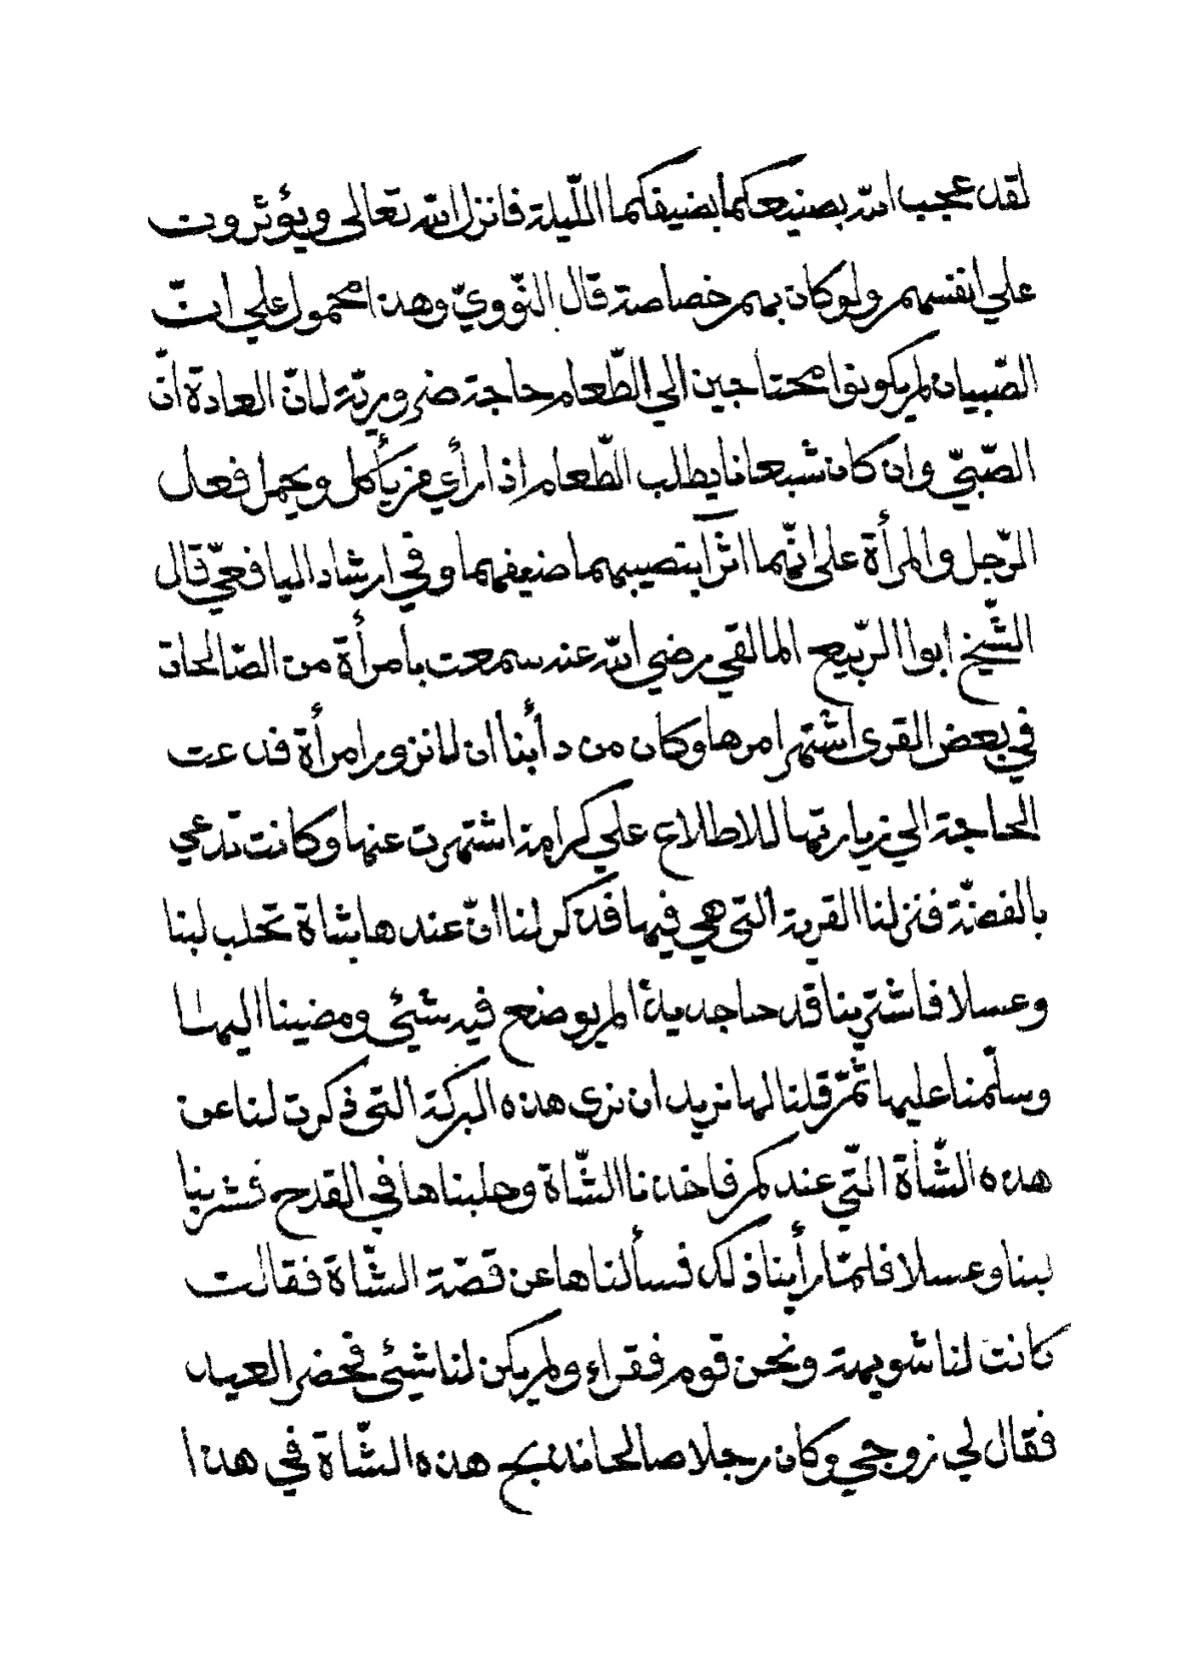 لقد عجب الله بصنيعكما بضيفكما اللّيلة فانزل الله تعالى ويؤثرون
علي انفسهم ولو كان بهم خصاصة قال النّوويّ وهذا محمول علي انّ
الصّبيان لم يكونوا محتاجين الي الطّعام حاجة ضروريّة لانّ العادة انّ
الصّبيّ وان كان شبعانا يطلب الطّعام اذا رأي من يأكل ويحمل فعل
الرّجل والمرأة علي انّهما اثرا بنصيبهما ضيفهما وفي ارشاد اليافعيّ قال
الشّيخ ابوا الرّبيع المالقي رضي الله عنه سمعت بامرأة من الصّالحات
في بعض القرى اشتهر امرها وكان من دأبنا ان لا نزور امرأة فدعت
الحاجة الي زيارتها للاطلاع علي كرامة اشتهرت عنها وكانت تدعي
بالفضّة فنزلنا القرية التي هي فيها فذكر لنا انّ عندها شاة تحلب لبنا
وعسلا فاشترينا قدحا جديدا لم يوضع فيه شئي ومضينا اليها
وسلّمنا عليها ثمّ قلنا لها نريد ان نرى هذه البركة التي ذكرت لنا عن
هذه الشّأة التّي عندكم فاخذنا الشّاة وحلبناها في القدح فشربنا
لبنا وعسلا فلمّا رأينا ذلك فسألناها عن قصّة الشّاة فقالت
كانت لنا شويهة ونحن قوم فقراء ولم يكن لنا شيئي فحضر العيد
فقال لي زوجي وكان رجلا صالحا نذبح هذه الشّاة في هذا